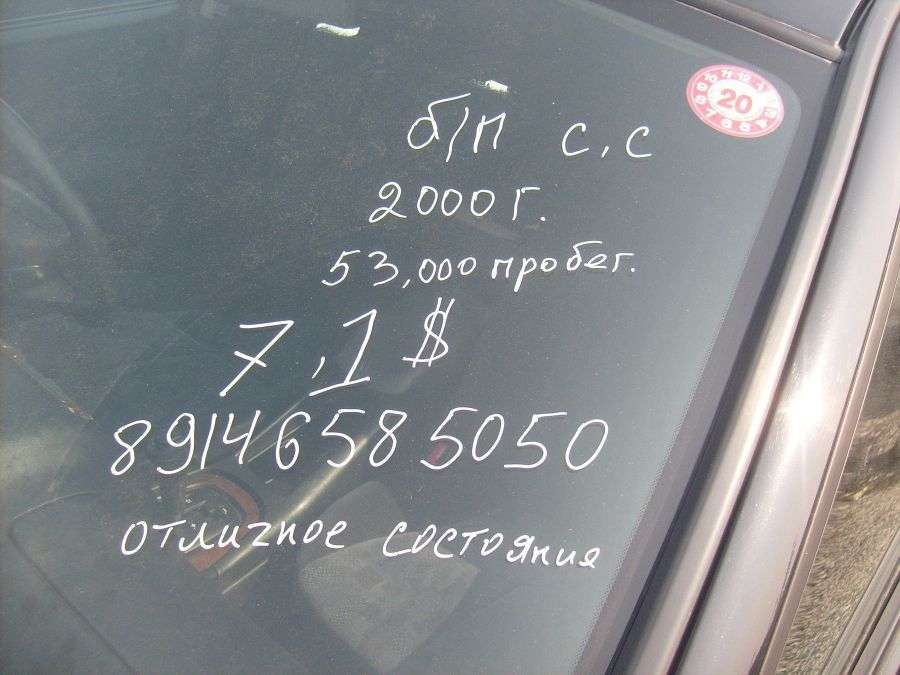 20
б/п с.с
2000г.
53,000 пробег.
7,1 $
89146585050
отличное состояния